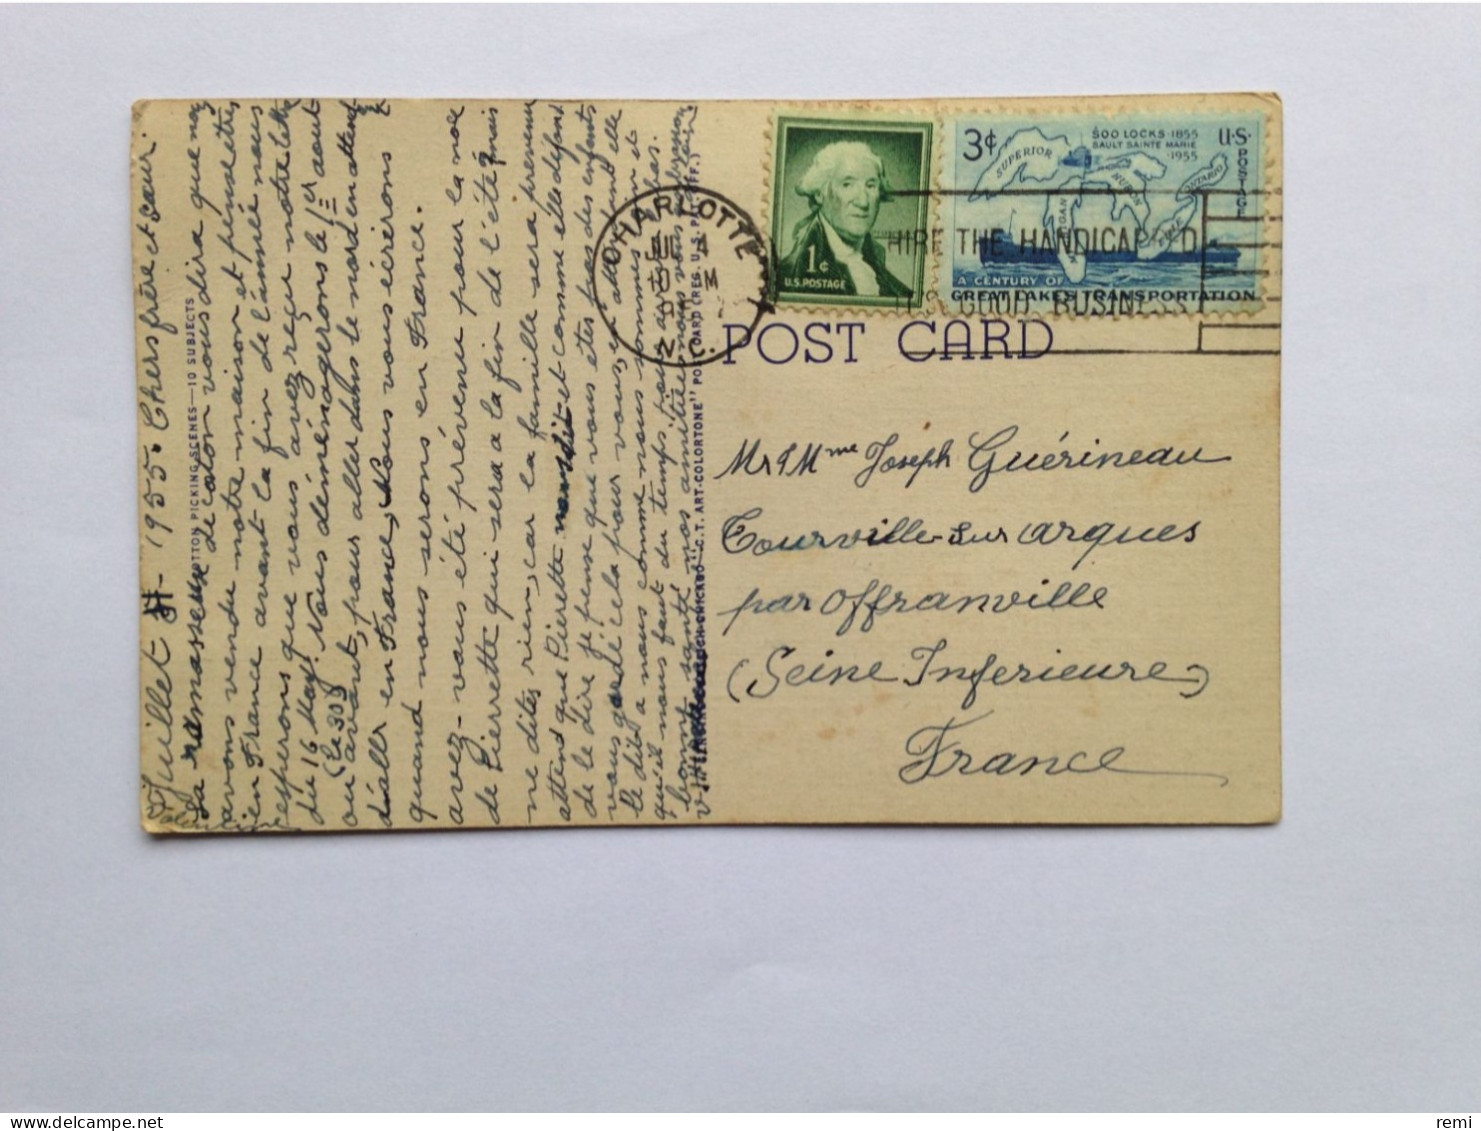 Juillet 4-1955. Chers frère et sœur.
La ramasseuse de coton vous dira que nous
avons vendu notre maison et peut-être
en France avant la fin de l'année nous
espérons que vous avez reçu notre lettre
du 16 May. Nous déménagerons le 1er aout
(le 30J
ou avant, pour aller dans le nord en attend
d'aller en France, Nous vous écrirons
quand nous serons en France.
avez-vous été prévenu pour la noce
de Pierrette qui sera a la fin de l'été? mais
ne dites rien, car la famille sera prévenu
attend que Pierrette vous dit et comme elle défend
de le dire je pense que vous êtes pas des enfants
vous gardé cela pour vous, en attendant elle
le dit a nous comme nous sommes loin et
qu'il nous faut du temps pour arriver là bas.
bonne santé nos amitiés nous vous embrassons
Valentine
COTTON PICKING SCENES—10 SUBJECTS
"C.T. ART-COLORTONE" POST CARD (REG. U.S. PAT. OFF.)
CHARLOTTE
N.C.
1¢
U.S. POSTAGE
3¢
SOO LOCKS·1855
SAULT SAINTE MARIE
1955
U·S·
POSTAGE
SUPERIOR
HURON
ONTARIO
ERIE
A CENTURY OF
GREAT LAKES TRANSPORTATION
HIRE THE HANDICAPPED
IT'S GOOD BUSINESS
POST CARD
Mr & Mme Joseph Guérineau
Tourville-sur Arques
par Offranville
(Seine Inferieure)
France
remi